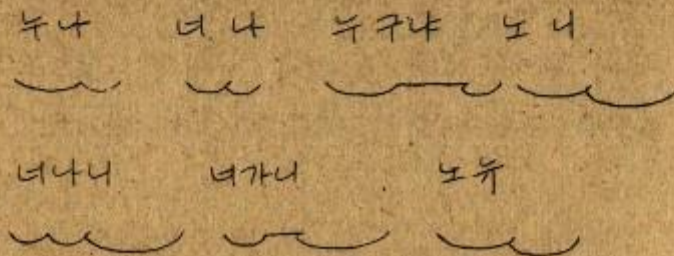 누나 너나 누구냐 노니
너나니 너가니 노뉴